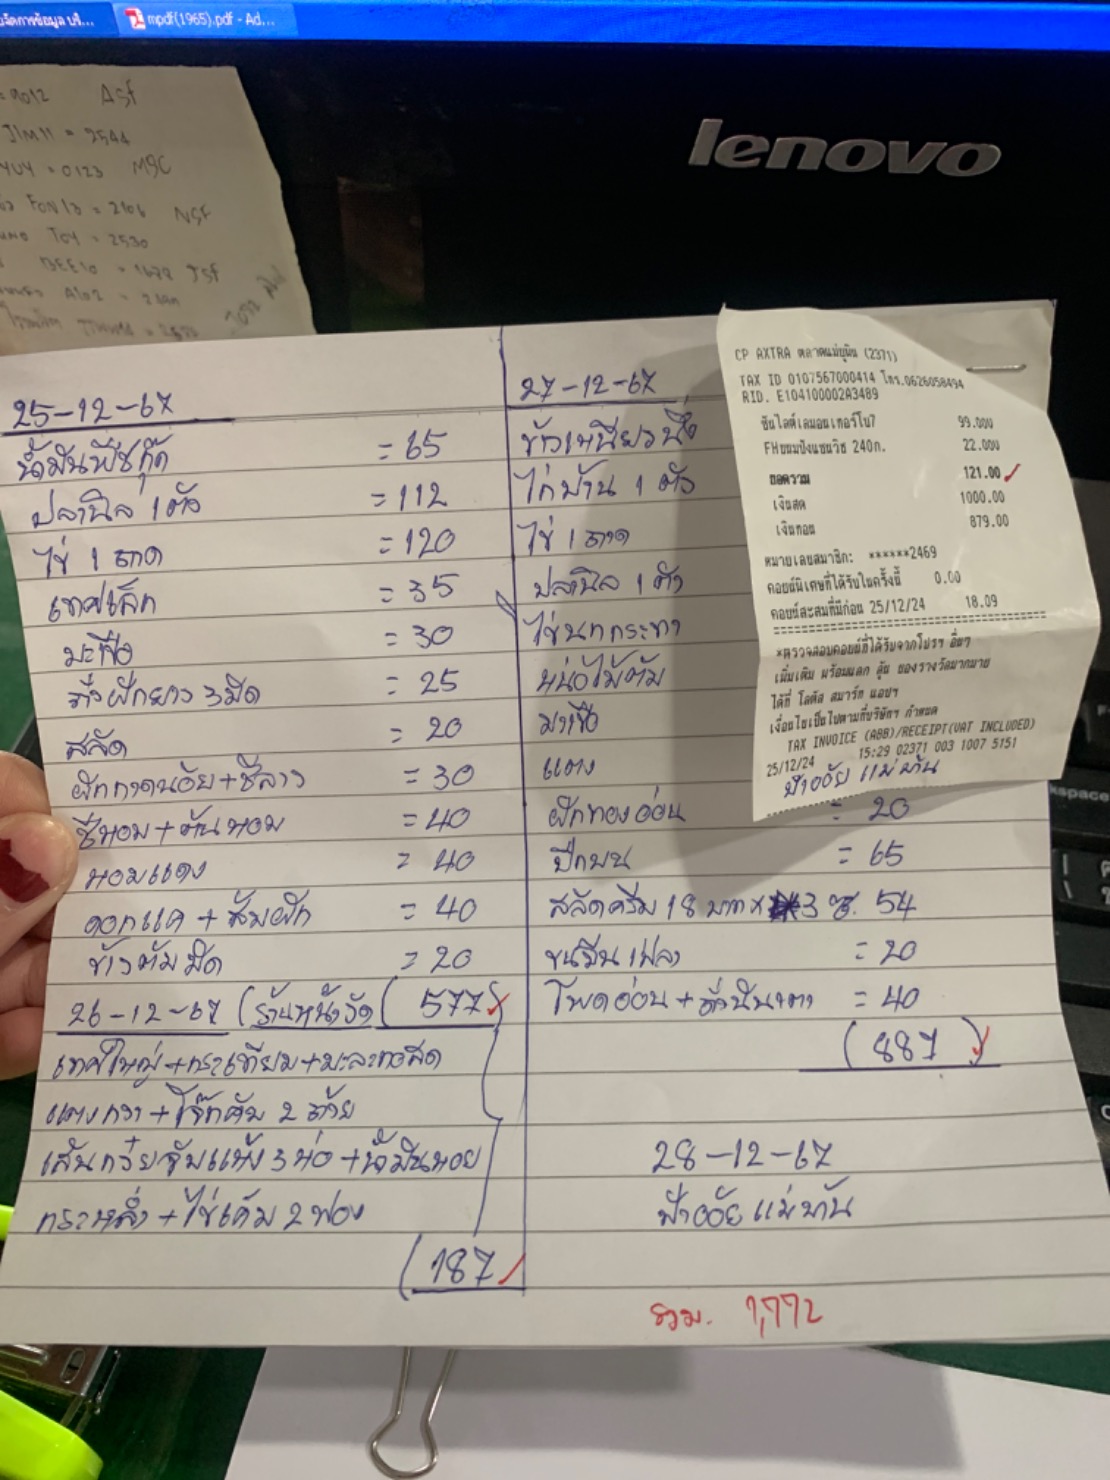 mpdf(1965).pdf - Ad...
lenovo
= 9012 Asf
JIM11 = 2544
= 0123 MSC
FON13 = 2106 NSF
TOY = 2530
BEE10
25-12-67
น้ำมันพืชกุ๊ก = 65
ปลานิล 1 ตัว = 112
ไข่ 1 ถาด = 120
เทศเล็ก = 35
มะเขือ = 30
ถั่วฝักยาว 3 มัด = 25
สลัด = 20
ผักกาดน้อย + ชีลาว = 30
ชีหอม + ต้นหอม = 40
หอมแดง = 40
ดอกแค + ส้มผัก = 40
ข้าวต้มมัด = 20
( 577 )
26-12-67 (ร้านหน้าวัด
เทศใหญ่ + กระเทียม + มะละกอสด
แตงกวา + โจ๊กคัพ 2 ถ้วย
+
เส้นกวยจั๊บแห้ง 3 ห่อ + น้ำมันหอย
กระหล่ำ + ไข่เค็ม 2 ฟอง
( 187
27-12-67
ข้าวเหนียวนึ่ง
ไก่บ้าน 1 ตัว
ไข่ 1 ถาด
ปลานิล 1 ตัว
ไข่นกกระทา
หน่อไม้ต้ม
มะเขือ
แตง
ฟักทองอ่อน = 20
ปีกบน = 65
สลัดครีม 18 บาท x 3 ซ. 54
ขนมีนเปล่า = 20
โพดอ่อน + = 40
( 887 )
28-12-67
ป้าออ้ย แม่บ้าน
รวม. 1,772
CP AXTRA ตลาดแม่ยูนิน (2371)
TAX ID 0107567000414 โทร.0626058494
RID. E104100002A3489
ซันไลต์เลมอนเทอร์โบ7 99.00U
FHขนมปังแซนวิช 240ก. 22.00U
ยอดรวม 121.00
เงินสด 1000.00
เงินทอน 879.00
หมายเลขสมาชิก: ******2469
คอยน์พิเศษที่ได้รับในครั้งนี้ 0.00
คอยน์สะสมที่มีก่อน 25/12/24 18.09
*ตรวจสอบคอยน์ที่ได้รับจากโปรฯ อื่นๆ
เพิ่มเติม พร้อมแลก ลุ้น ของรางวัลมากมาย
ได้ที่ โลตัส สมาร์ท แอปฯ
เงื่อนไขเป็นไปตามที่บริษัทฯ กำหนด
TAX INVOICE (ABB)/RECEIPT(VAT INCLUDED)
25/12/24 15:29 02371 003 1007 5151
ป้าออ้ย แม่บ้าน